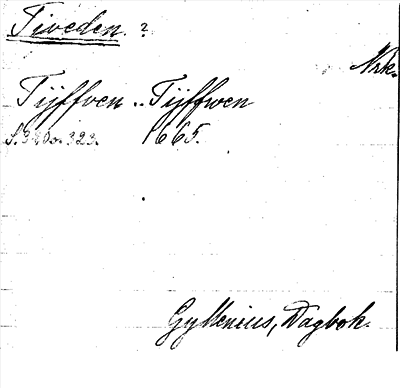 Tiveden. ?
Nrk.
Tÿffven .. Tÿffwen
S. 320 o. 323. 1665.
Gyllenius, Dagbok.